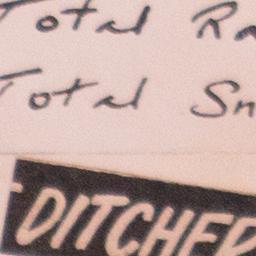 Total Ra
Total Sn
DITCHED